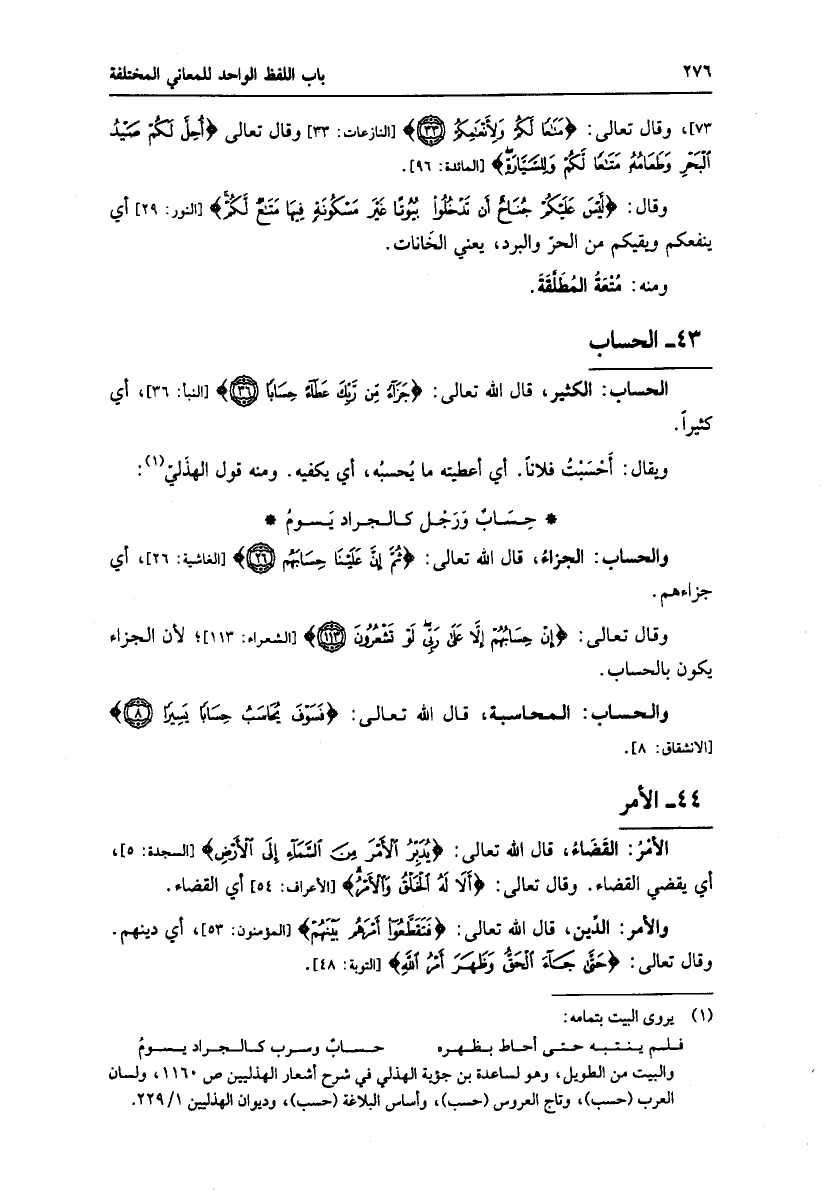 ٢٧٦ باب اللفظ الواحد للمعاني المختلفة
٧٣]، وقال تعالى: ﴿مَتَٰعًا لَّكُمْ وَلِأَنْعَٰمِكُمْ ۝٣٣﴾ [النازعات: ٣٣] وقال تعالى ﴿أُحِلَّ لَكُمْ صَيْدُ
ٱلْبَحْرِ وَطَعَامُهُۥ مَتَٰعًا لَّكُمْ وَلِلسَّيَّارَةِۖ﴾ [المائدة: ٩٦].
وقال: ﴿لَّيْسَ عَلَيْكُمْ جُنَاحٌ أَن تَدْخُلُوا۟ بُيُوتًا غَيْرَ مَسْكُونَةٍ فِيهَا مَتَٰعٌ لَّكُمْۚ﴾ [النور: ٢٩] أي
ينفعكم ويقيكم من الحرّ والبرد، يعني الخَانات.
ومنه: مُتْعَةُ المُطَلَّقَةَ.
٤٣ـ الحساب
الحساب: الكثير، قال الله تعالى: ﴿جَزَآءً مِّن رَّبِّكَ عَطَآءً حِسَابًا ۝٣٦﴾ [النبأ: ٣٦]، أي
كثيراً.
ويقال: أَحْسَبْتُ فلاناً. أي أعطيته ما يُحسبُه، أي يكفيه. ومنه قول الهذَليّ(١):
* حِسَابٌ وَرَجْل كالجراد يَسومُ *
والحساب: الجزاءُ، قال الله تعالى: ﴿ثُمَّ إِنَّ عَلَيْنَا حِسَابَهُم ۝٢٦﴾ [الغاشية: ٢٦]، أي
جزاءهم.
وقال تعالى: ﴿إِنْ حِسَابُهُمْ إِلَّا عَلَىٰ رَبِّىۖ لَوْ تَشْعُرُونَ ۝١١٣﴾ [الشعراء: ١١٣]؛ لأن الجزاء
يكون بالحساب.
والحساب: المحاسبة، قال الله تعالى: ﴿فَسَوْفَ يُحَاسَبُ حِسَابًا يَسِيرًا ۝٨﴾
[الانشقاق: ٨].
٤٤ـ الأمر
الأمْرُ: القَضَاءُ، قال الله تعالى: ﴿يُدَبِّرُ ٱلْأَمْرَ مِنَ ٱلسَّمَآءِ إِلَى ٱلْأَرْضِ﴾ [السجدة: ٥]،
أي يقضي القضاء. وقال تعالى: ﴿أَلَا لَهُ ٱلْخَلْقُ وَٱلْأَمْرُۗ﴾ [الأعراف: ٥٤] أي القضاء.
والأمر: الدِّين، قال الله تعالى: ﴿فَتَقَطَّعُوٓا۟ أَمْرَهُم بَيْنَهُمْ﴾ [المؤمنون: ٥٣]، أي دينهم.
وقال تعالى: ﴿حَتَّىٰ جَآءَ ٱلْحَقُّ وَظَهَرَ أَمْرُ ٱللَّهِ﴾ [التوبة: ٤٨].
(١) يروى البيت بتمامه:
فلم ينتبه حتى أحاط بظهره حساب وسرب كالجراد يسومُ
والبيت من الطويل، وهو لساعدة بن جؤية الهذلي في شرح أشعار الهذليين ص ١١٦٠، ولسان
العرب (حسب)، وتاج العروس (حسب)، وأساس البلاغة (حسب)، وديوان الهذليين ١/ ٢٢٩.